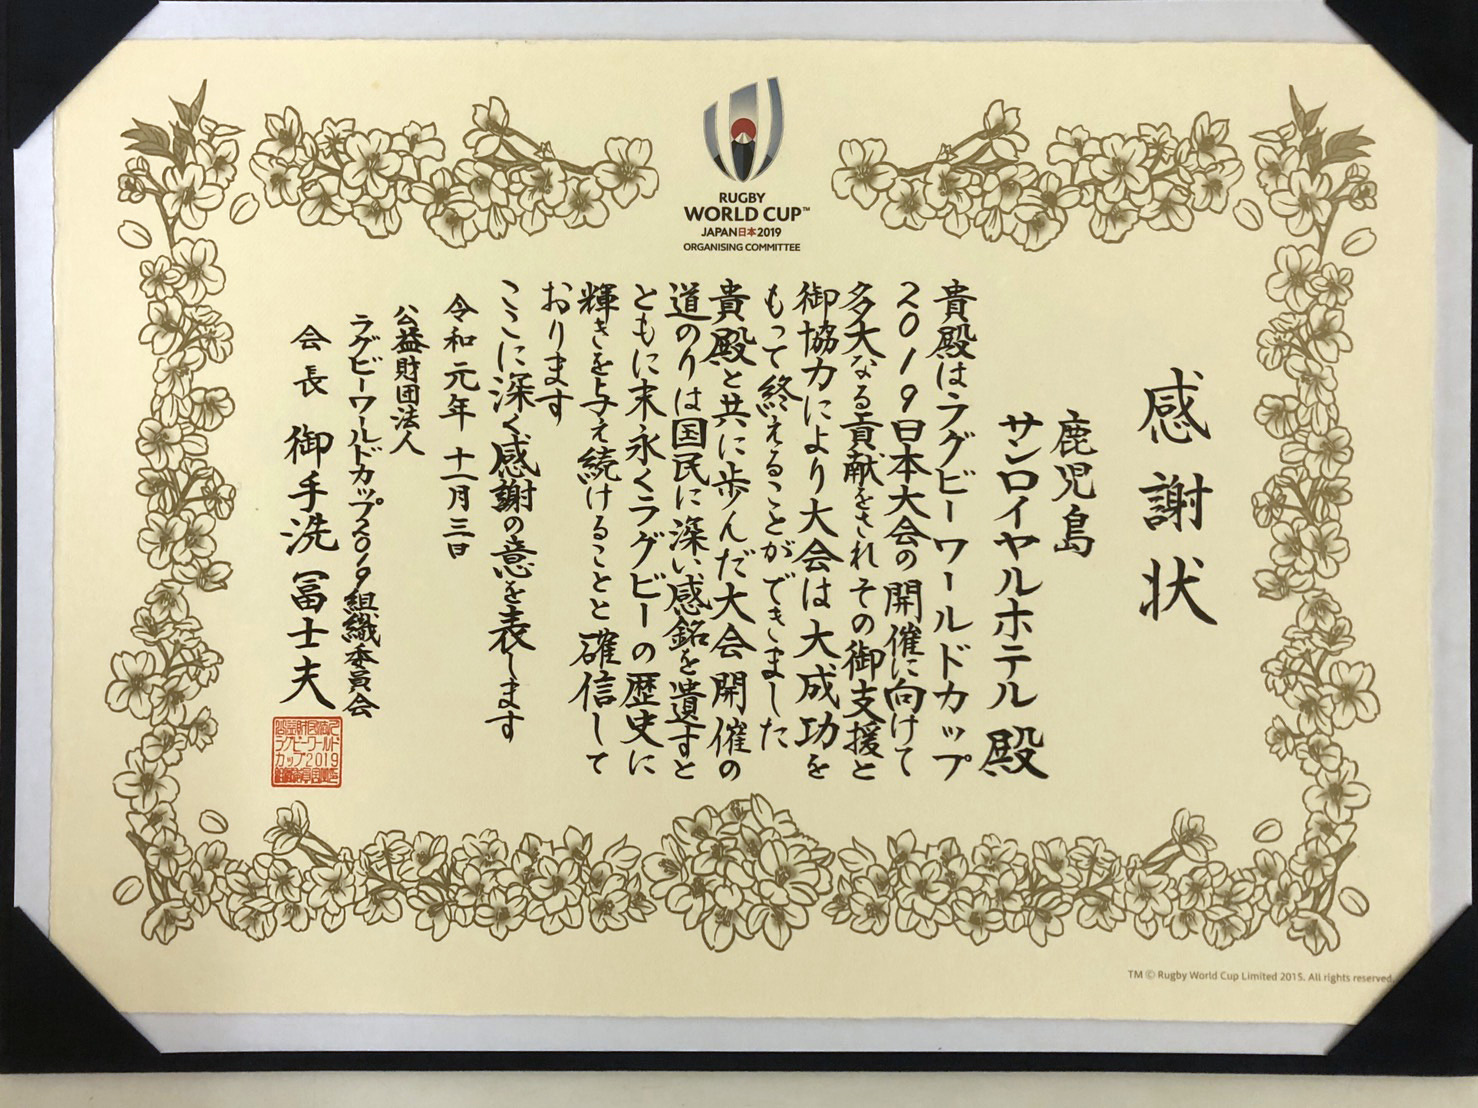 RUGBY
WORLD CUP™
JAPAN日本2019
ORGANISING COMMITTEE
感謝状
鹿児島
サンロイヤルホテル 殿
貴殿はラグビーワールドカップ
2019日本大会の開催に向けて
多大なる貢献をされその御支援と
御協力により大会は大成功を
もって終えることができました
貴殿と共に歩んだ大会開催の
道のりは国民に深い感銘を遺すと
ともに末永くラグビーの歴史に
輝きを与え続けることと確信して
おります
ここに深く感謝の意を表します
令和元年 十一月三日
公益財団法人
ラグビーワールドカップ2019組織委員会
会長 御手洗 冨士夫
ラグビーワールド
カップ2019
TM © Rugby World Cup Limited 2015. All rights reserved.